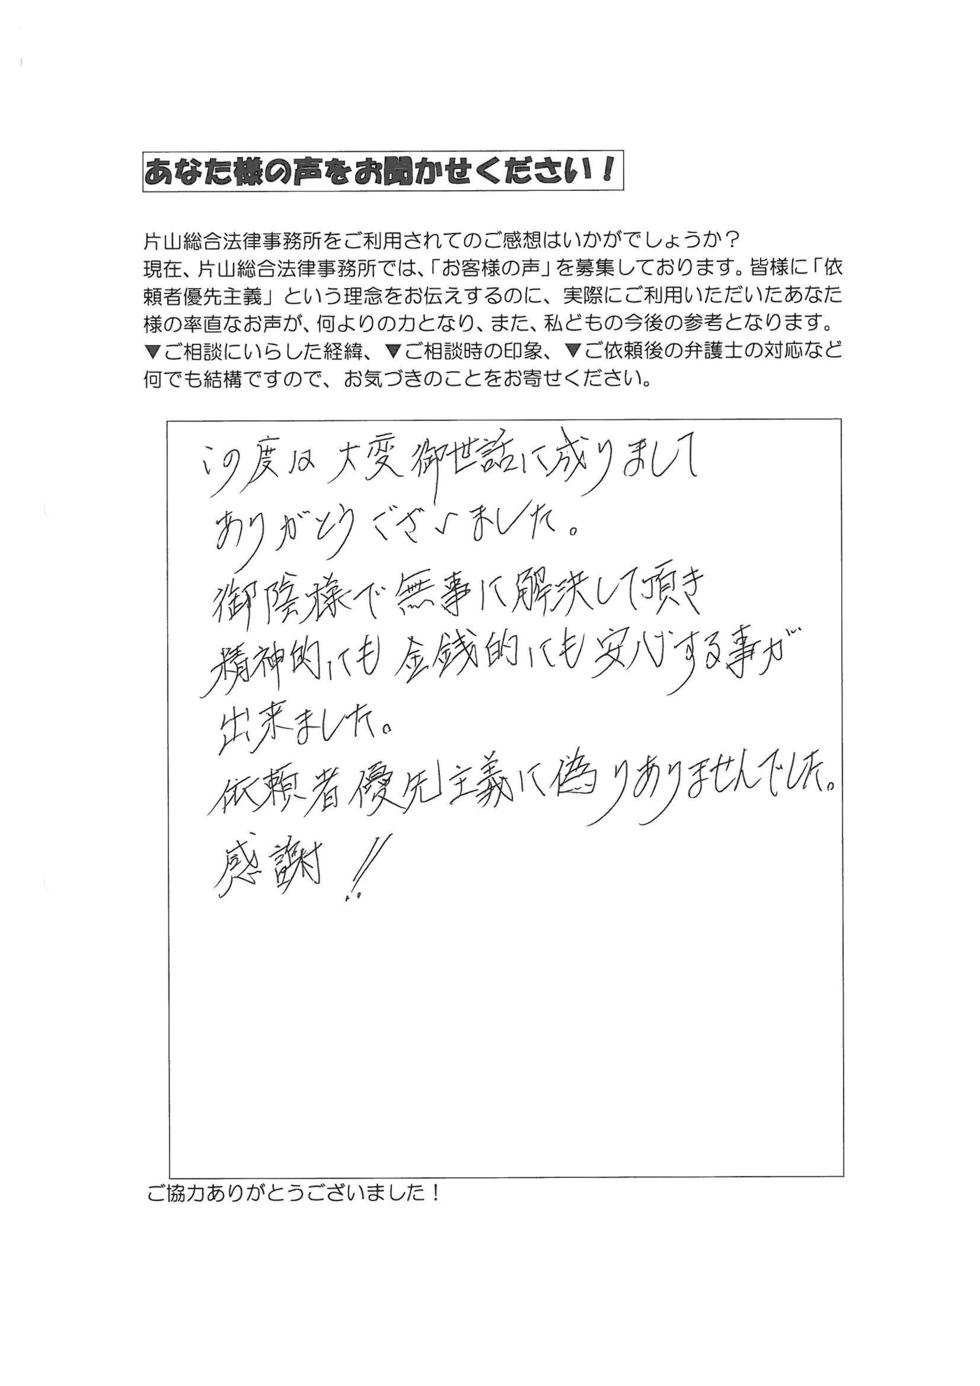 あなた様の声をお聞かせください！
片山総合法律事務所をご利用されてのご感想はいかがでしょうか？
現在、片山総合法律事務所では、「お客様の声」を募集しております。皆様に「依
頼者優先主義」という理念をお伝えするのに、実際にご利用いただいたあなた
様の率直なお声が、何よりの力となり、また、私どもの今後の参考となります。
▼ご相談にいらした経緯、▼ご相談時の印象、▼ご依頼後の弁護士の対応など
何でも結構ですので、お気づきのことをお寄せください。
この度は大変御世話に成りまして
ありがとうございました。
御陰様で無事に解決して頂き
精神的にも金銭的にも安心する事が
出来ました。
依頼者優先主義に偽りありませんでした。
感謝!!
ご協力ありがとうございました！